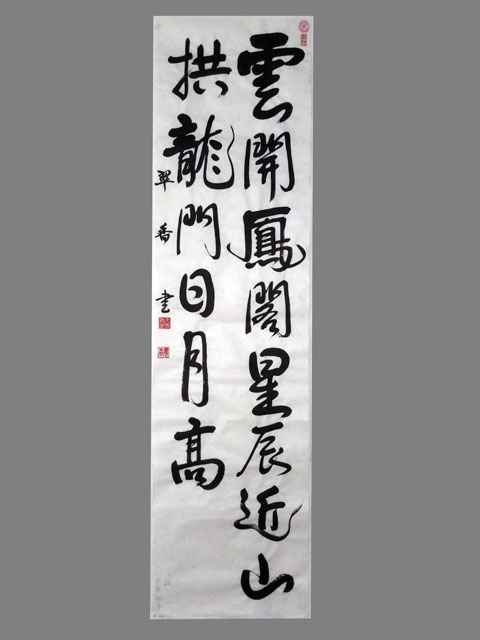 雲開鳳閣星辰近山
拱龍門日月高
翠香書